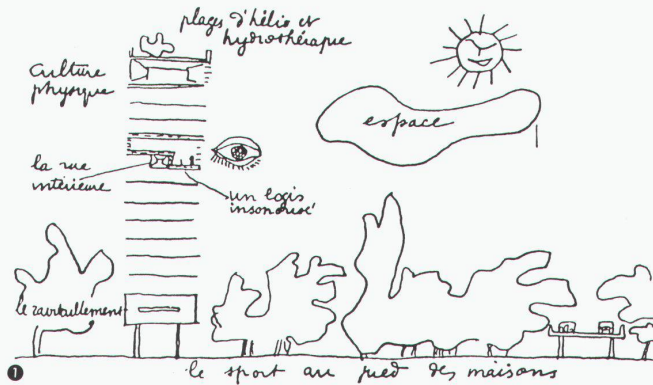 plages d'hélio et
hydrothérapie
culture
physique
espace
la rue
intérieure
un logis
insonorisé
le ravitaillement
1
le sport au pied des maisons